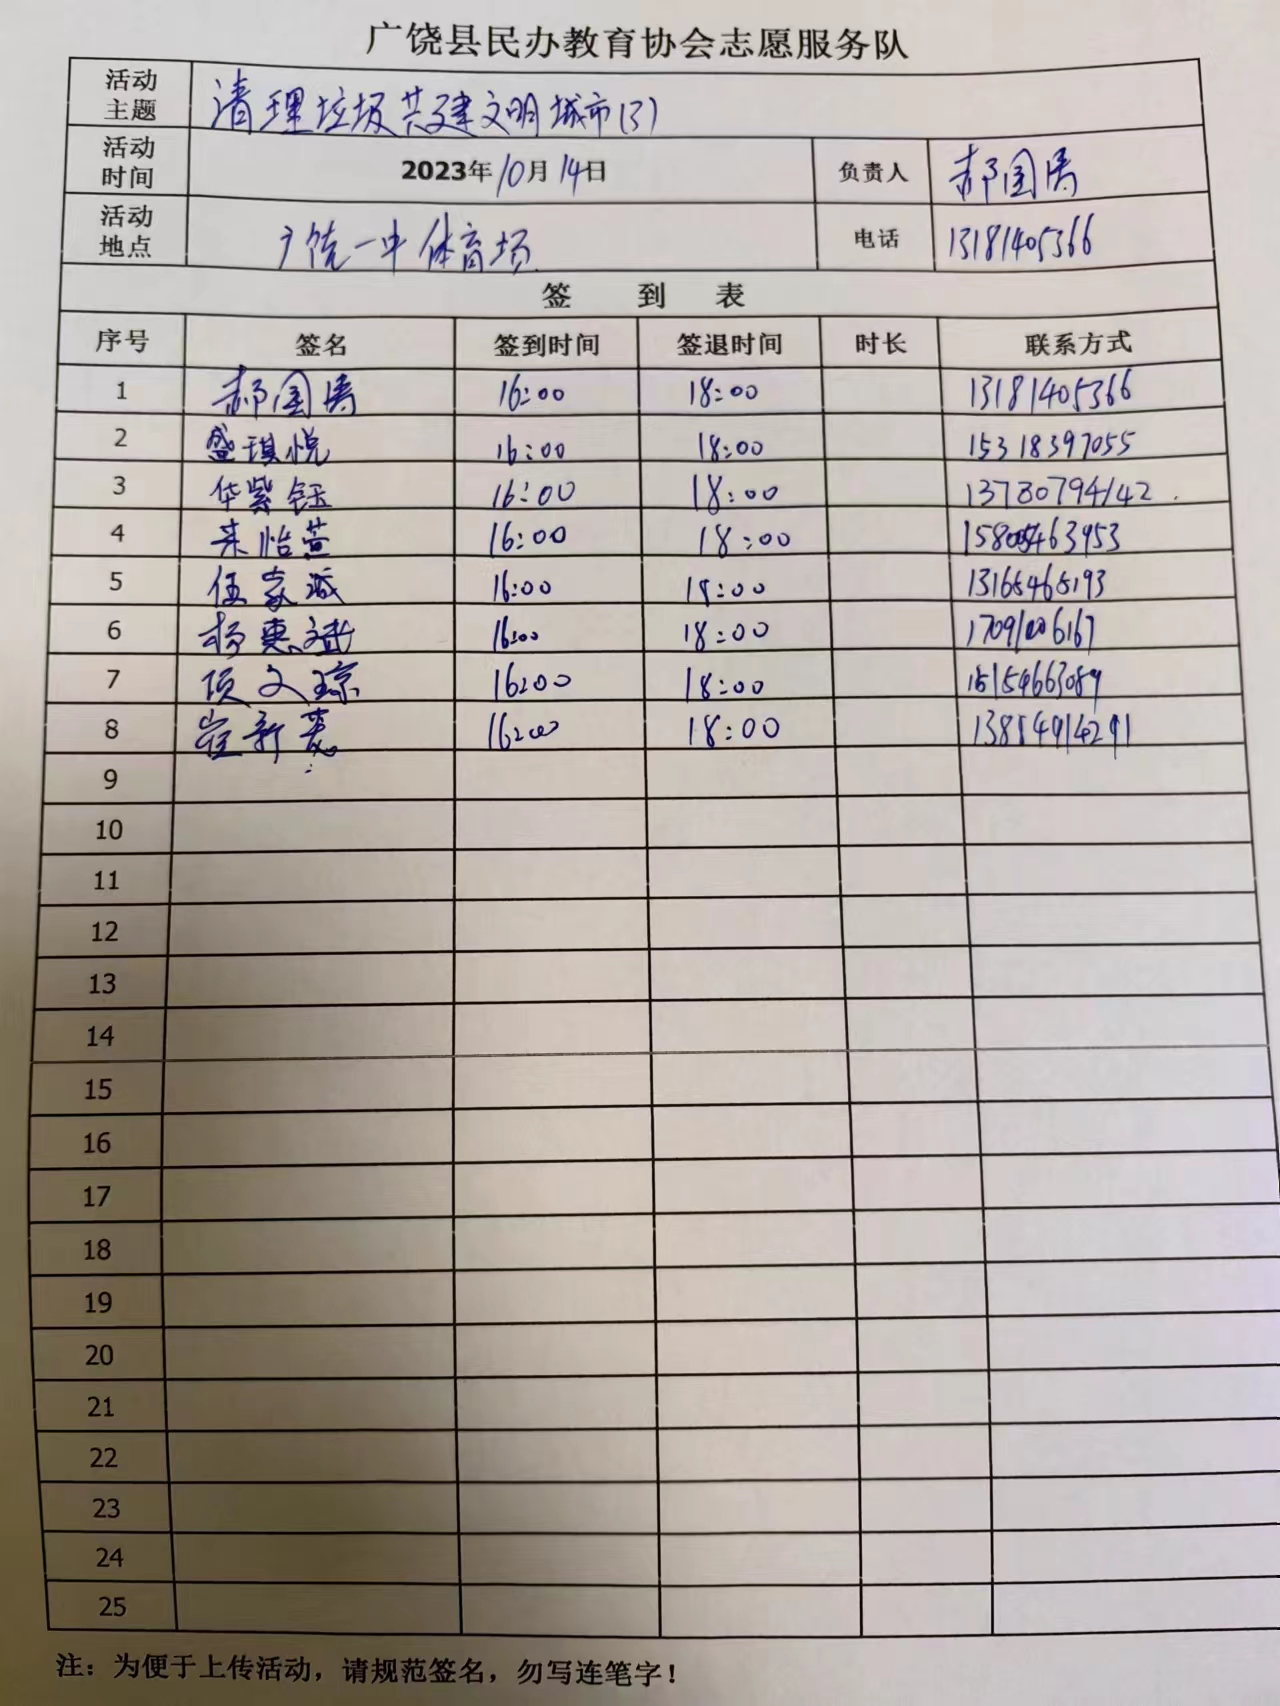 广饶县民办教育协会志愿服务队
活动主题 清理垃圾共建文明城市(3)
活动时间 2023年10月14日 负责人 郝国涛
活动地点 广饶一中体育场 电话 13181405366
签到表
序号 签名 签到时间 签退时间 时长 联系方式
1 郝国涛 16:00 18:00 13181405366
2 盛琪悦 16:00 18:00 15318397055
3 华紫钰 16:00 18:00 13780794142
4 来怡萱 16:00 18:00
5 伍家诚 16:00 18:00 13165465193
6 杨惠斌 16:00 18:00
7 项文琼 16:00 18:00 15154663089
8 崔新蕊 16:00 18:00
9
10
11
12
13
14
15
16
17
18
19
20
21
22
23
24
25
注：为便于上传活动，请规范签名，勿写连笔字！